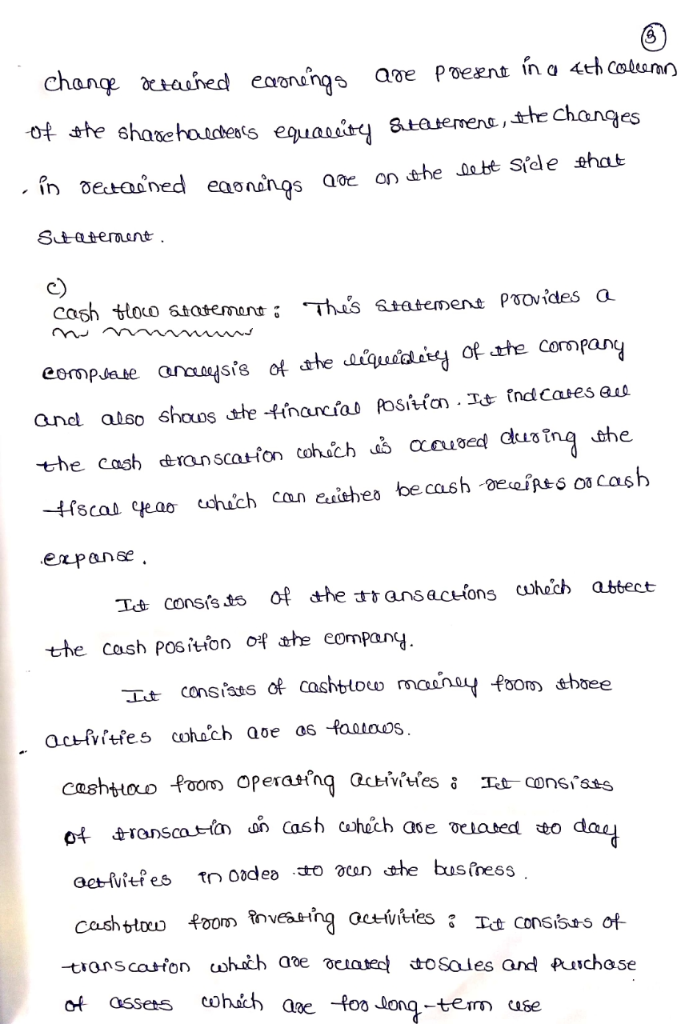 3
change retained earnings are present in a 4th column
of the shareholders equality statement, the changes
in rectained earnings are on the left side that
statement.
c)
cash flow statement : This statement provides a
complate analysis of the liquidity of the company
and also shows the financial position. It indcates all
the cash transcation which is occured during the
fiscal year which can euither be cash receipts or cash
expanse.
It consists of the transactions which affect
the cash position of the company.
It consists of cashflow mainly from three
activities which are as fallows.
cashflow from operating activities : It consists
of transcation in cash which are related to day
activities in order to run the business.
cashflow from investing activities : It consists of
transcation which are related to sales and purchase
of assets which are for long-term use